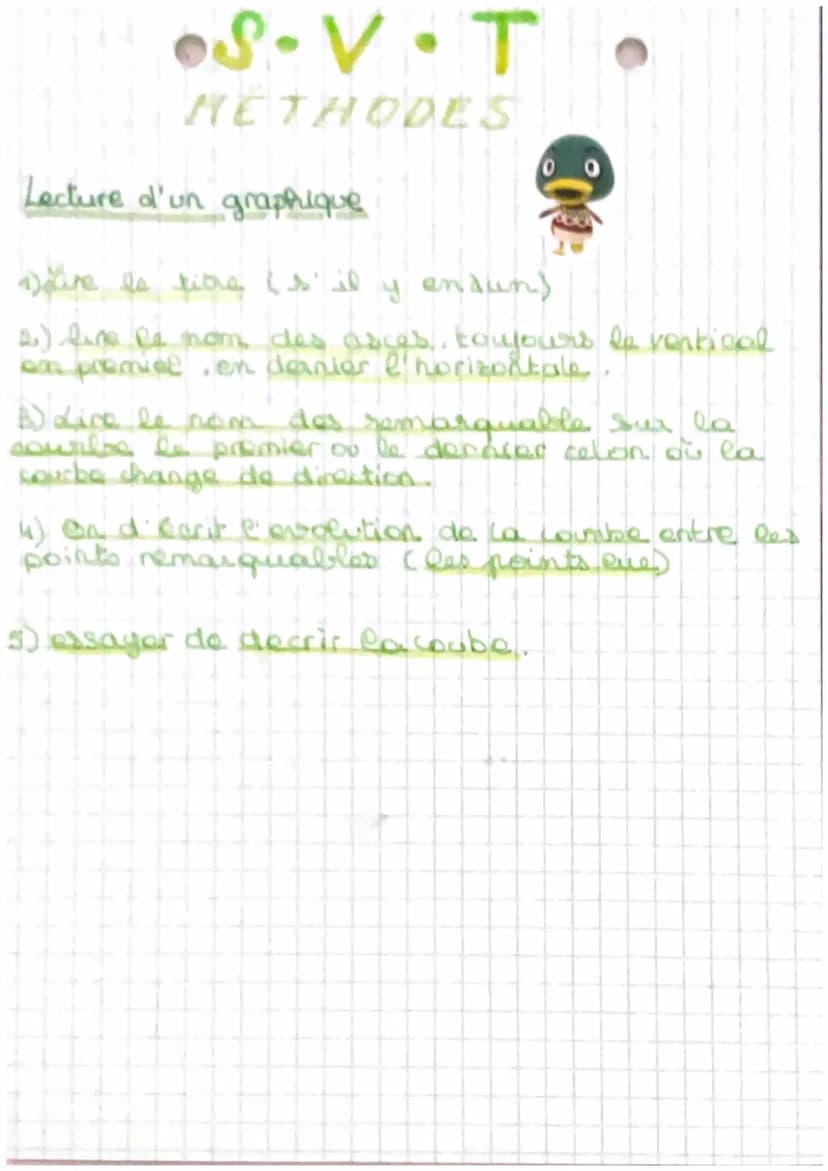 S.V.T
MÉTHODES
Lecture d'un graphique
1) Lire le titre (s'il y en a un)
2) lire le nom des axces, toujours le vertical
en premier, en dernier l'horizontale.
3) Lire le nom des remarquable sur la
courbe le premier ou le dernier celon où la
courbe change de direction.
4) On d'écrit l'evolution de la courbe entre les
points remarquables (les points
5) essayer de decrir la coube.